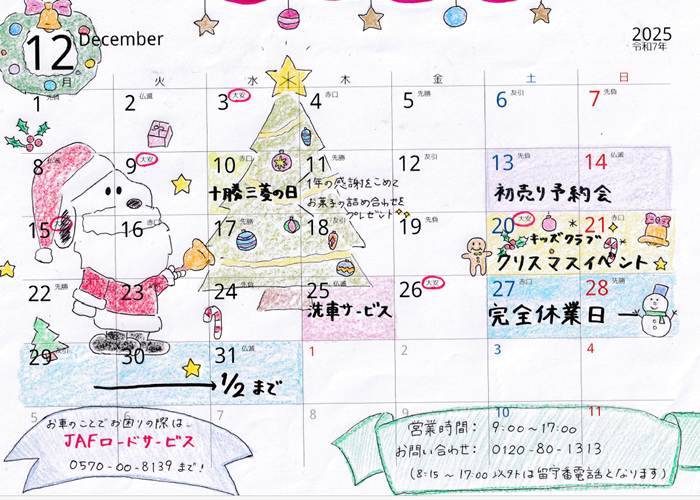 12 December
2025
令和7年
月 火 水 木 金 土 日
1 先負 2 仏滅 3 大安 4 赤口 5 先勝 6 友引 7 先負
8 仏滅 9 大安 10 赤口 11 先勝 12 友引 13 先負 14 仏滅
十勝三菱の日
1年の感謝をこめて
お菓子の詰め合わせを
プレゼント
初売り予約会
15 大安 16 赤口 17 先勝 18 友引 19 先負 20 大安 21 赤口
キッズクラブ
クリスマスイベント
22 先勝 23 友引 24 先負 25 仏滅 26 大安 27 赤口 28 先勝
洗車サービス
完全休業日
29 友引 30 先負 31 仏滅 1 2 3 4
1/2まで
5 6 7 8 9 10 11
お車のことでお困りの際は
JAFロードサービス
0570-00-8139まで!
営業時間: 9:00~17:00
お問い合わせ: 0120-80-1313
(8:15~17:00以外は留守番電話となります)